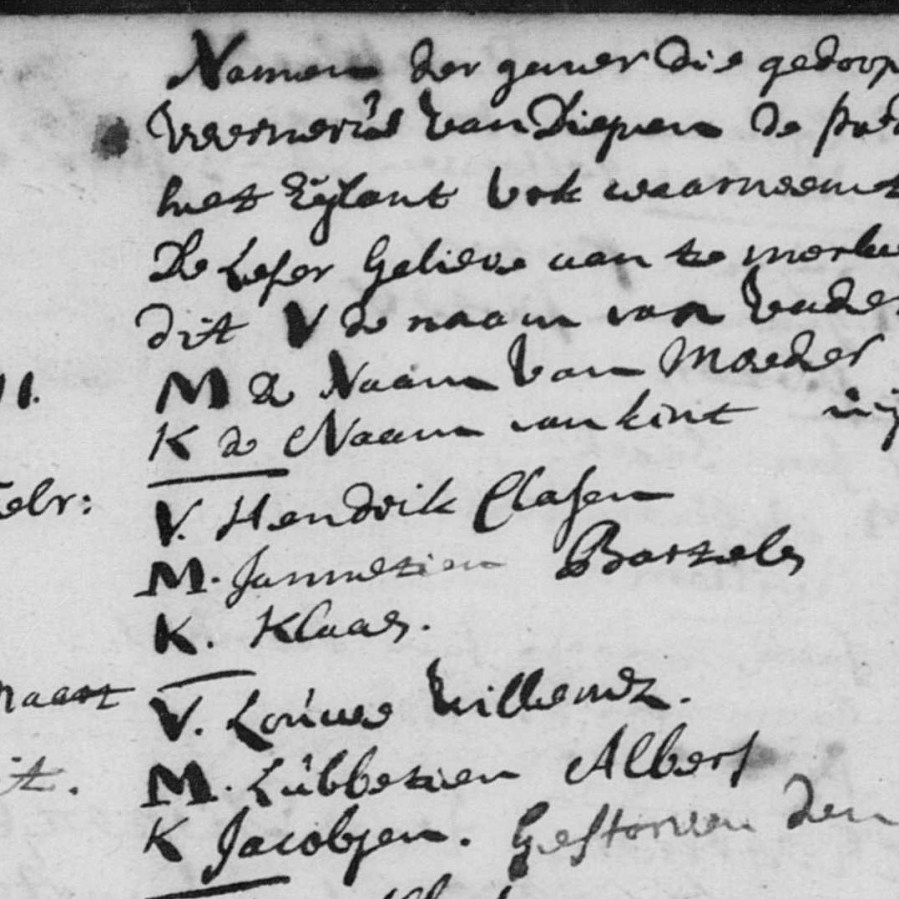 Namen der gener die gedoop
Weernerus van Diepen de pred
het Eijlant Urk waarneemt
De Leser Gelieve aan te merke
dit V de naam van Vader
11. M de Naam van Moeder
K de Naam van kint
Febr: V. Hendrik Clasen
M. Jannetien Bartels
K. Klaas.
maart V. Louwe Willemz.
it. M. Lubbetien Albert
K Jacobjen. Gestorven den